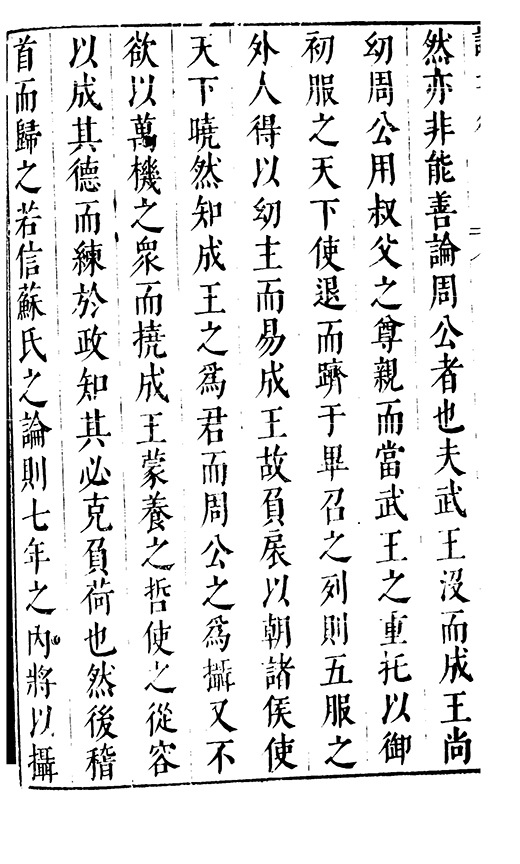 然亦非能善論周公者也夫武王沒而成王尚
幼周公用叔父之尊親而當武王之重托以御
初服之天下使退而躋于畢召之列則五服之
外人得以幼主而易成王故負扆以朝諸侯使
天下曉然知成王之爲君而周公之爲攝又不
欲以萬機之衆而撓成王蒙養之哲使之從容
以成其德而練於政知其必克負荷也然後稽
首而歸之若信蘇氏之論則七年之內將以攝